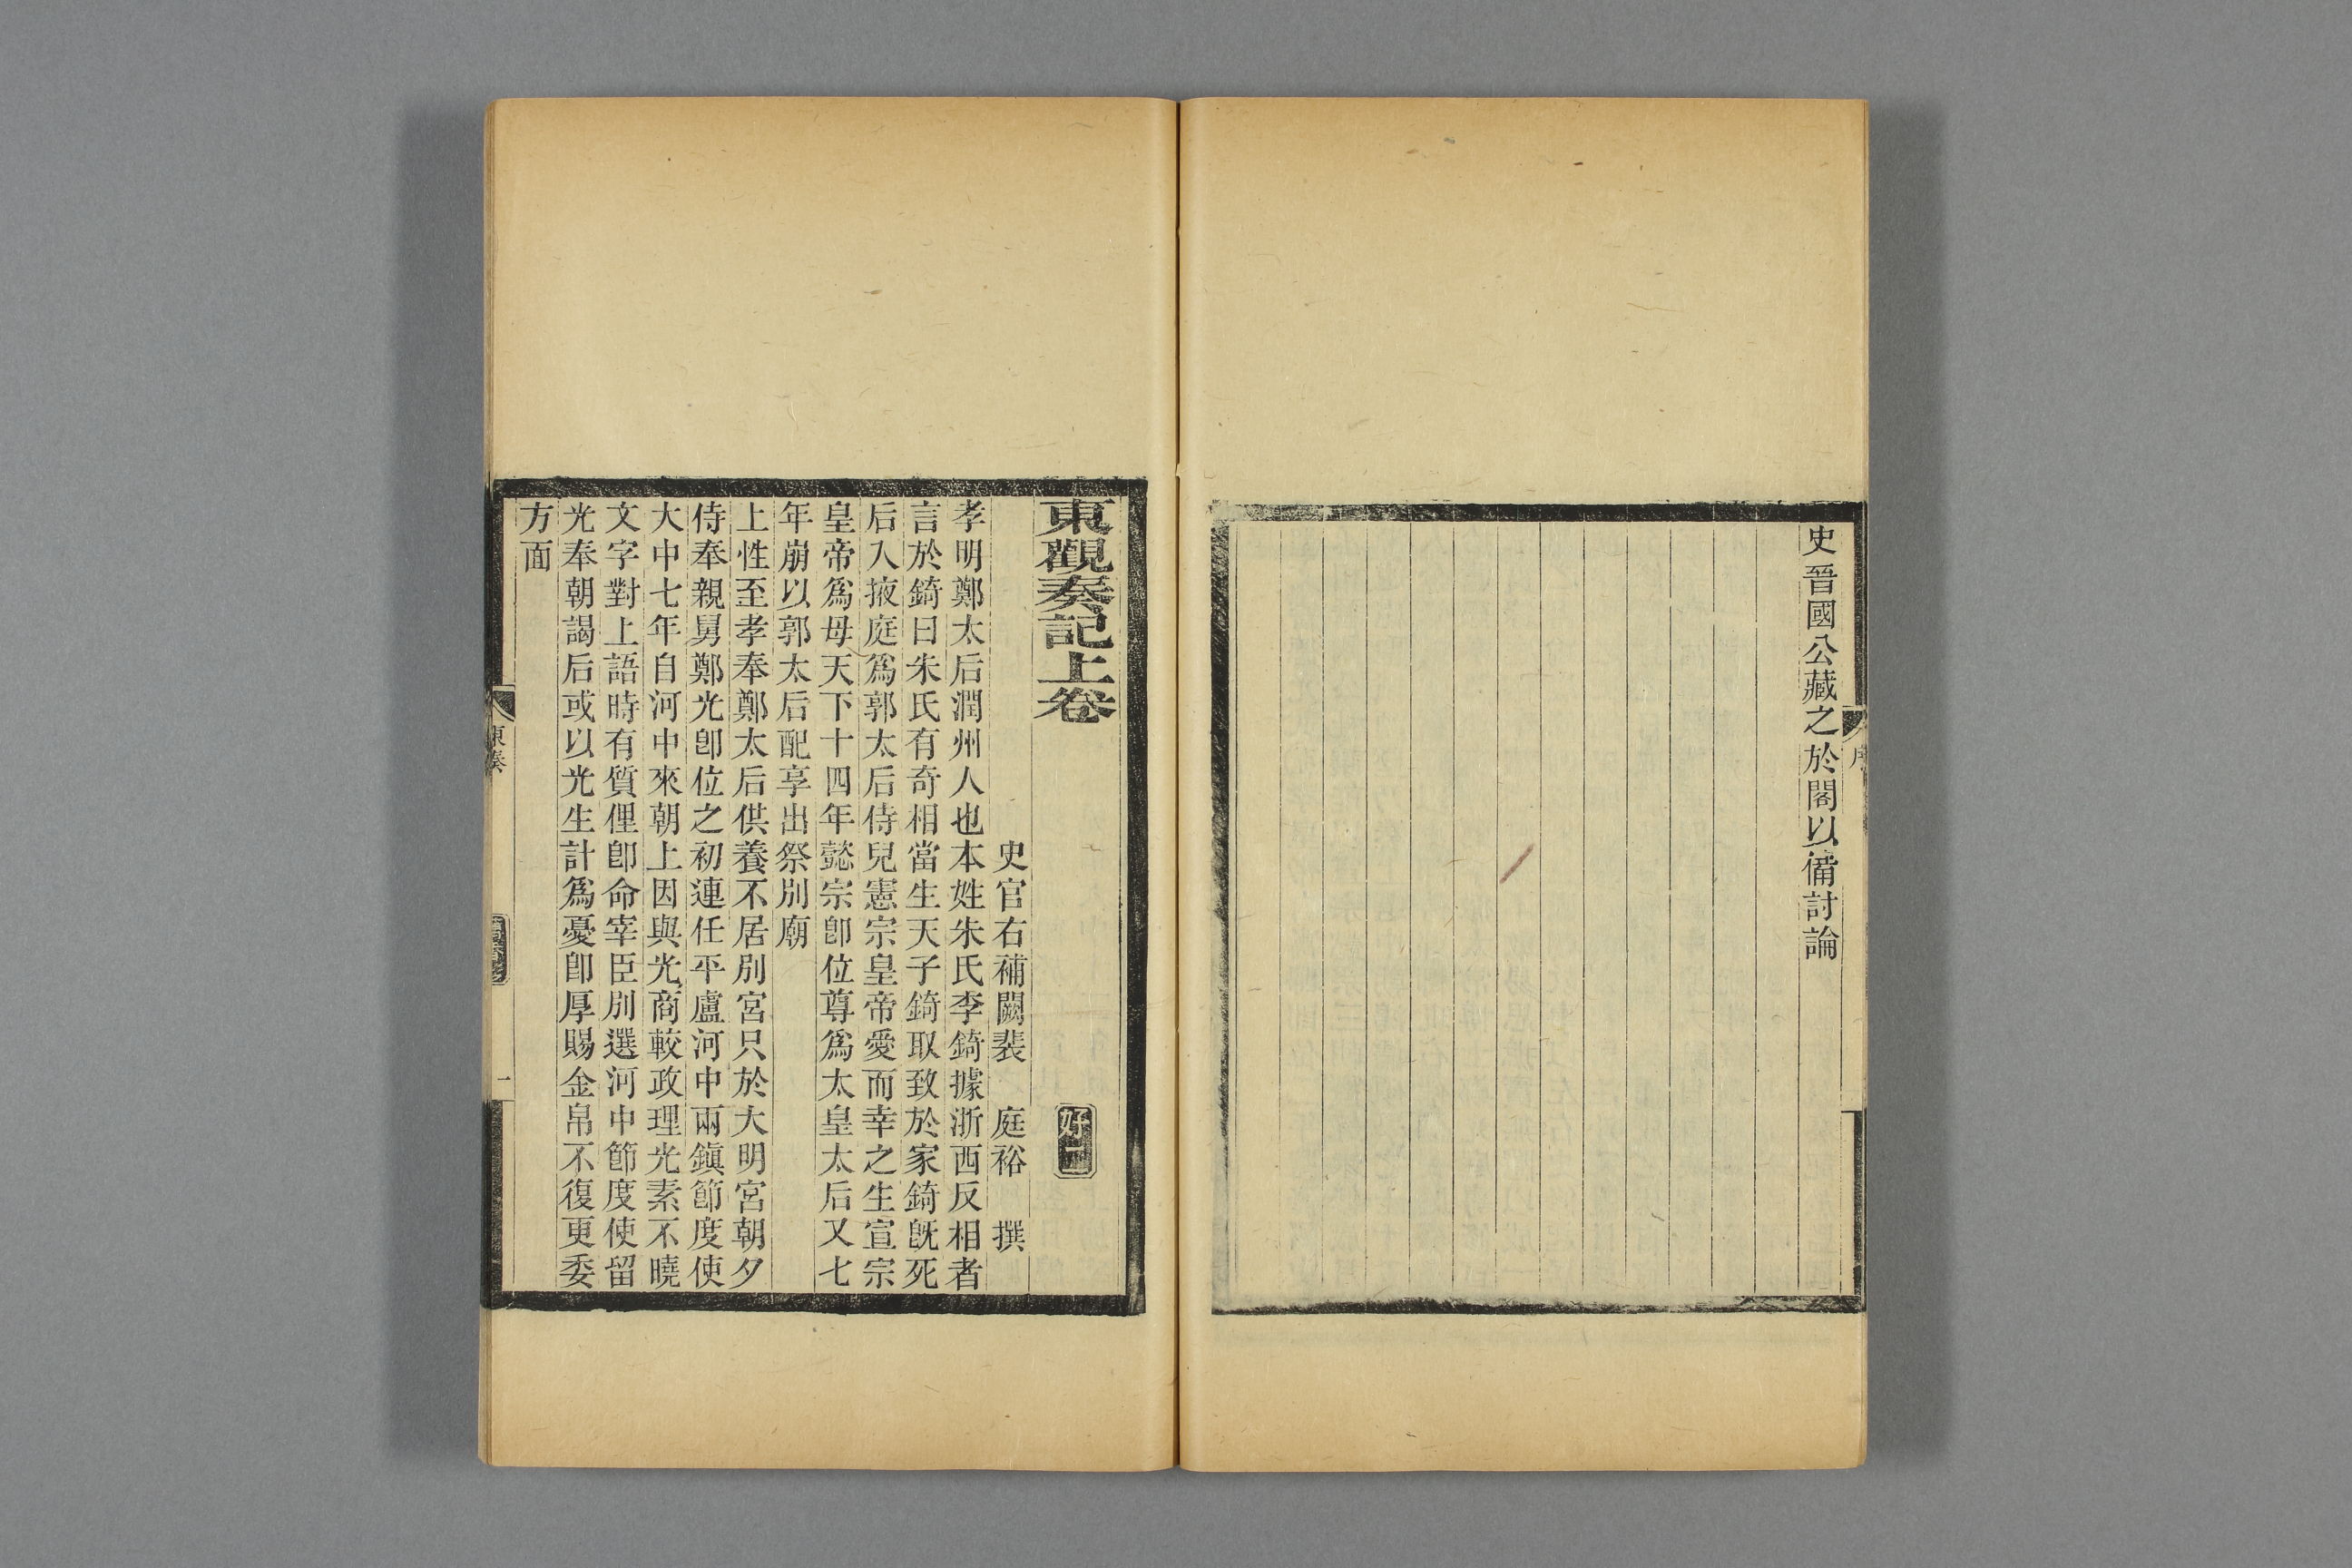 史晉國公藏之於閣以備討論
序
東觀奏記上卷
好一
史官右補闕裴　庭裕　撰
孝明鄭太后潤州人也本姓朱氏李錡據浙西反相者
言於錡曰朱氏有奇相當生天子錡取致於家錡旣死
后入掖庭爲郭太后侍兒憲宗皇帝愛而幸之生宣宗
皇帝爲母天下十四年懿宗卽位尊爲太皇太后又七
年崩以郭太后配享出祭別廟
上性至孝奉鄭太后供養不居別宮只於大明宮朝夕
侍奉親舅鄭光卽位之初連任平盧河中兩鎭節度使
大中七年自河中來朝上因與光商較政理光素不曉
文字對上語時有質俚卽命宰臣別選河中節度使留
光奉朝謁后或以光生計爲憂卽厚賜金帛不復更委
方面
東奏
一